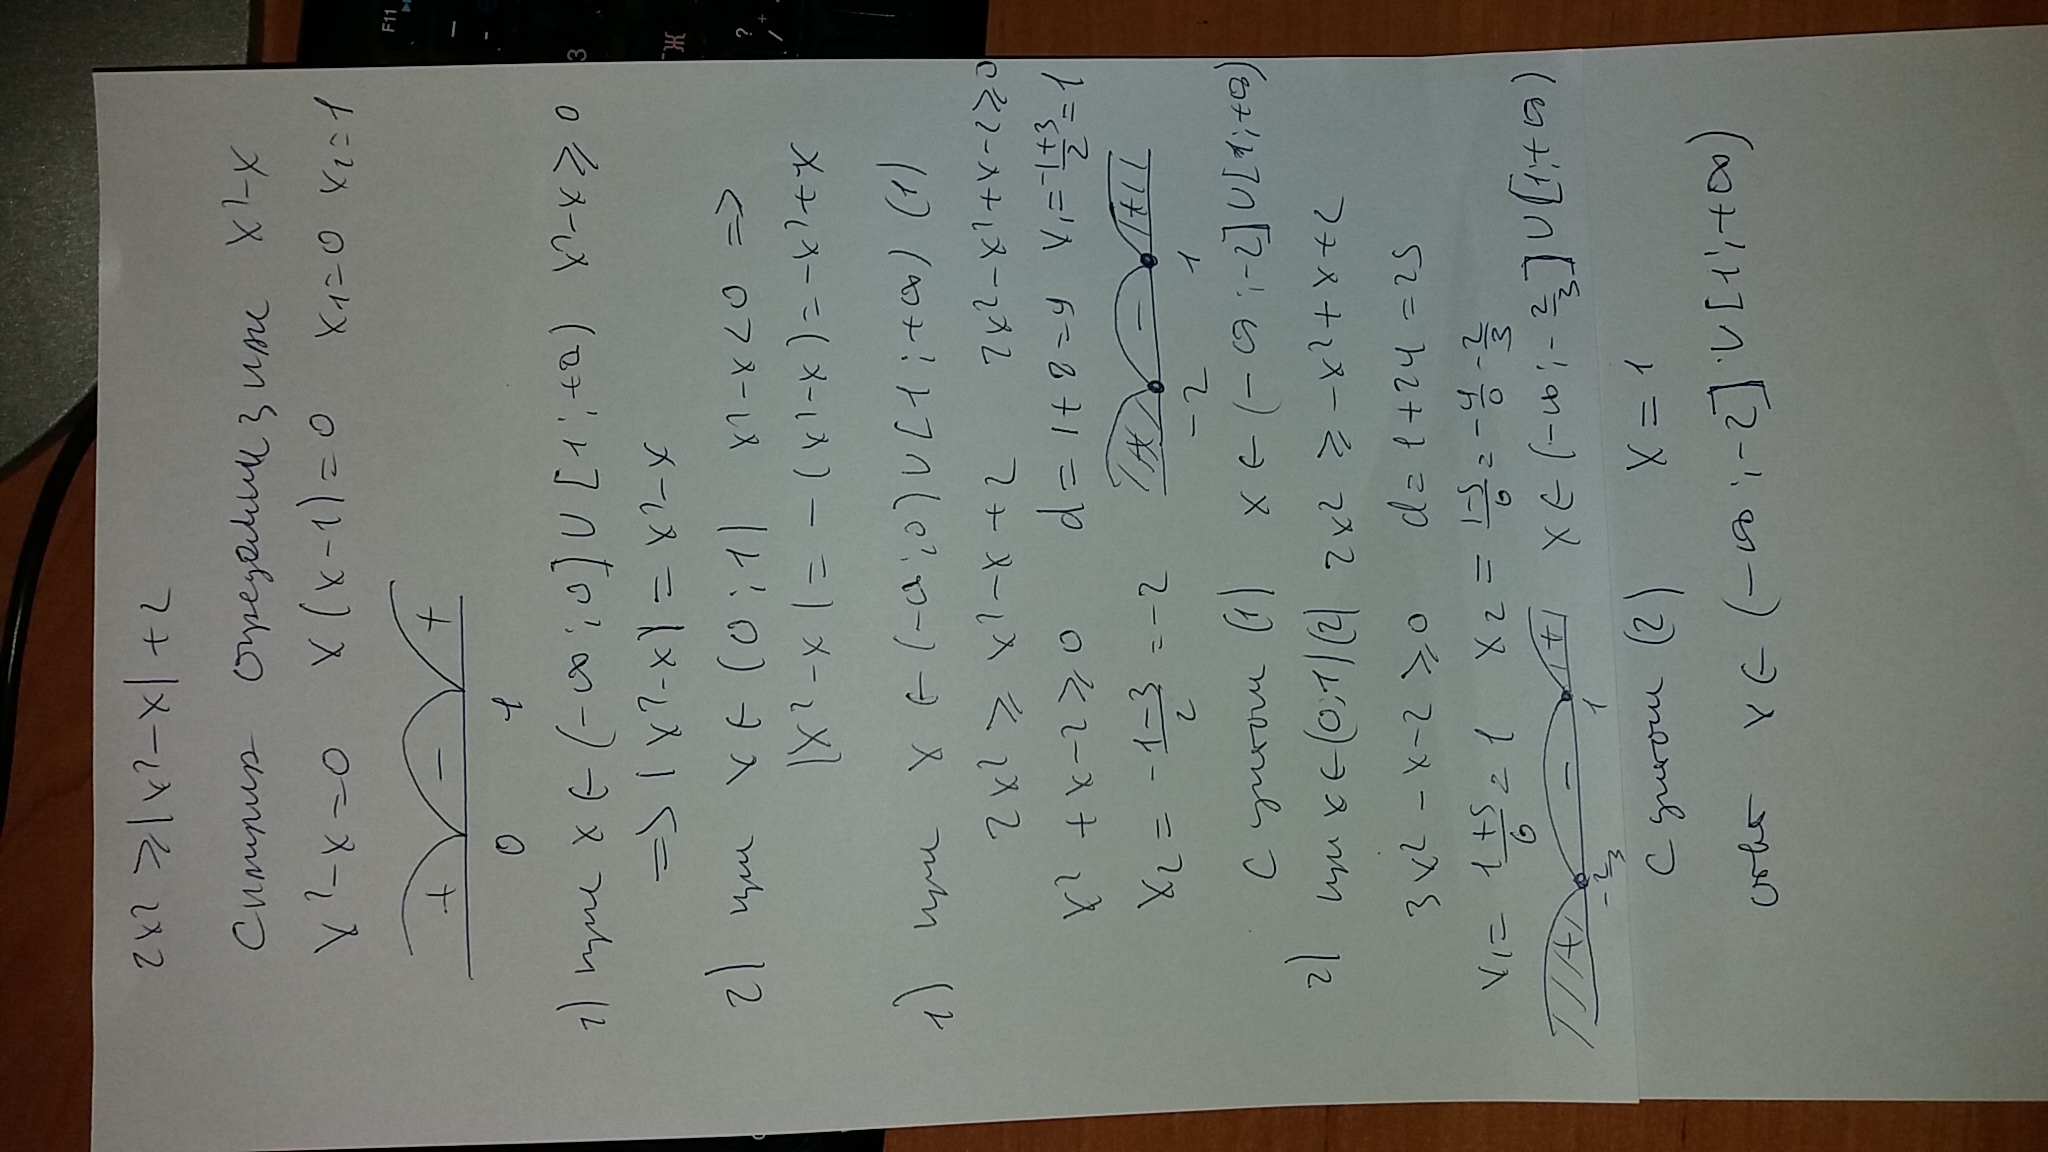 2x² ≥ |x²-x|+2
Сначала определим знак x²-x
x²-x=0 x(x-1)=0 x₁=0 x₂=1
+ - +
0 1
1) при x ∈ (-∞;0] ∪ [1;+∞) x²-x ≥ 0
=> |x²-x| = x²-x
2) при x ∈ (0;1) x²-x<0 =>
|x²-x| = -(x²-x) = -x²+x
1) при x ∈ (-∞;0] ∪ [1;+∞) (1)
2x² ≥ x²-x+2 2x²-x²+x-2≥0
x²+x-2≥0 d=1+8=9 x₁=(-1+3)/2=1
x₂ = (-1-3)/2 = -2
+ - +
-2 1
С учетом (1) x ∈ (-∞;-2] ∪ [1;+∞)
2) при x ∈ (0;1) (2) 2x² ≥ -x²+x+2
3x²-x-2≥0 d=1+24=25
x₁= (1+5)/6 = 1 x₂ = (1-5)/6 = -4/6 -2/3
+ - +
-2/3 1
x ∈ (-∞;-2/3] ∪ [1;+∞)
С учетом (2) x=1
ответ x ∈ (-∞;-2] ∪ [1;+∞)
F11
З
Ж
?
/
+